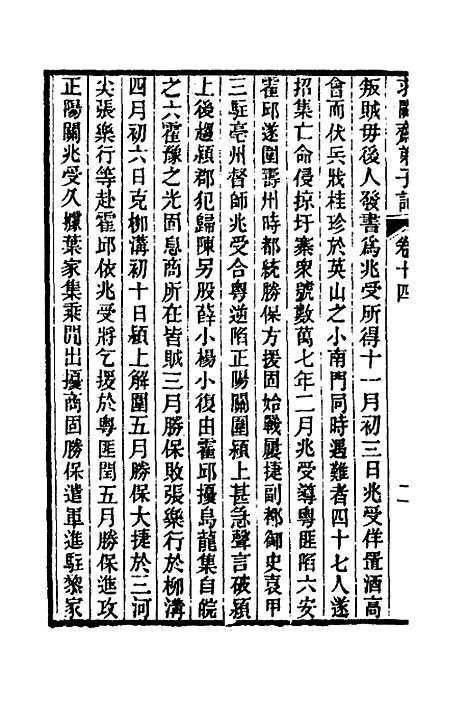 求闕齋弟子記 卷十四 二
叛賊毋後人發書爲兆受所得十一月初三日兆受佯置酒高
會而伏兵戕桂珍於英山之小南門同時遇難者四十七人遂
招集亡命侵掠圩寨衆號數萬七年二月兆受導粵匪陷六安
霍邱遂圍壽州時都統勝保方援固始戰屢捷副都御史袁甲
三駐亳州督師兆受合粵逆陷正陽關圍潁上甚急聲言破潁
上後趨潁郡犯歸陳另股薛小楊小復由霍邱擾烏龍集自皖
之六霍豫之光固息商所在皆賊三月勝保敗張樂行於柳溝
四月初六日克柳溝初十日潁上解圍五月勝保大捷於三河
尖張樂行等赴霍邱依兆受將乞援於粵匪閏五月勝保進攻
正陽關兆受久據葉家集乘閒出擾商固勝保遣軍進駐黎家